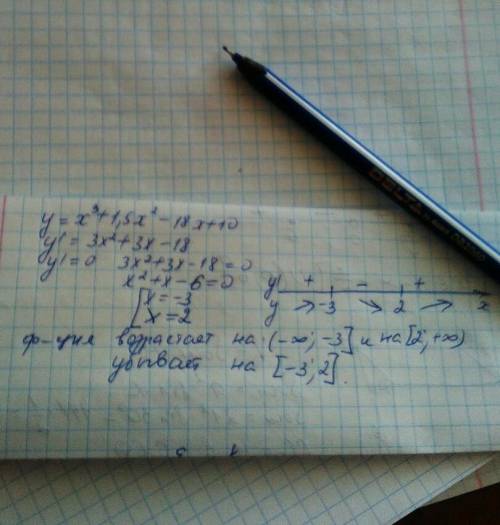 y = x³ + 1,5x² - 18x + 10
y' = 3x² + 3x - 18
y' = 0 3x² + 3x - 18 = 0
x² + x - 6 = 0
[ x = -3
x = 2
y' + - +
y ↗ -3 ↘ 2 ↗ x
ф-ция возрастает на (-∞; -3] и на [2; +∞)
убывает на [-3; 2].